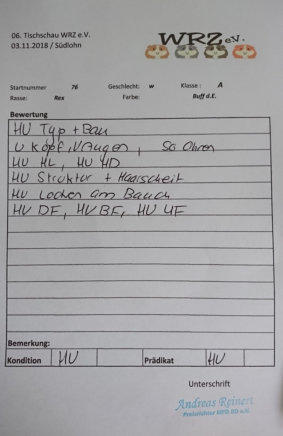 06. Tischschau WRZ e.V.
03.11.2018 / Südlohn
WRZ e.V.
Startnummer 76 Geschlecht: w Klasse: A
Rasse: Rex Farbe: Buff d.E.
Bewertung
HV Typ + Bau
V Kopf, V Augen, SG Ohren
HV HL, HV HD
HV Struktur + Haarscheit
HV Locken am Bauch
HV DF, HV BF, HV UF
Bemerkung:
Kondition HV Prädikat HV
Unterschrift
Andreas Reinert
Preisrichter MFD BD e.V.